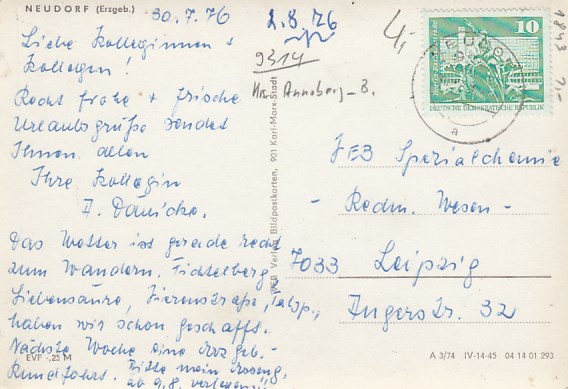 NEUDORF (Erzgeb.)
30.7.76
2.8.76
Liebe Kolleginnen +
Kollegen!
Recht frohe + frische
Urlaubsgrüße sendet
Ihnen allen
Ihre Kollegin
Das Wetter ist gerade recht
zum Wandern. Fichtelberg,
Siebensäure, Talsp.,
haben wir schon geschafft.
Nächste Woche eine Erzgeb.-
Rundfahrt. Bitte mein
ab 9.8. verlesen!!
EVP -,25 M
9314
Krs. Annaberg-B.
VEB Verlag Bildpostkarten, 901 Karl-Marx-Stadt
4,-
10
DEUTSCHE DEMOKRATISCHE REPUBLIK
a
1843 1,-
VEB Spezialchemie
- Redn. Wesen -
7033 Leipzig
32
A 3/74 IV-14-45 04 14 01 293